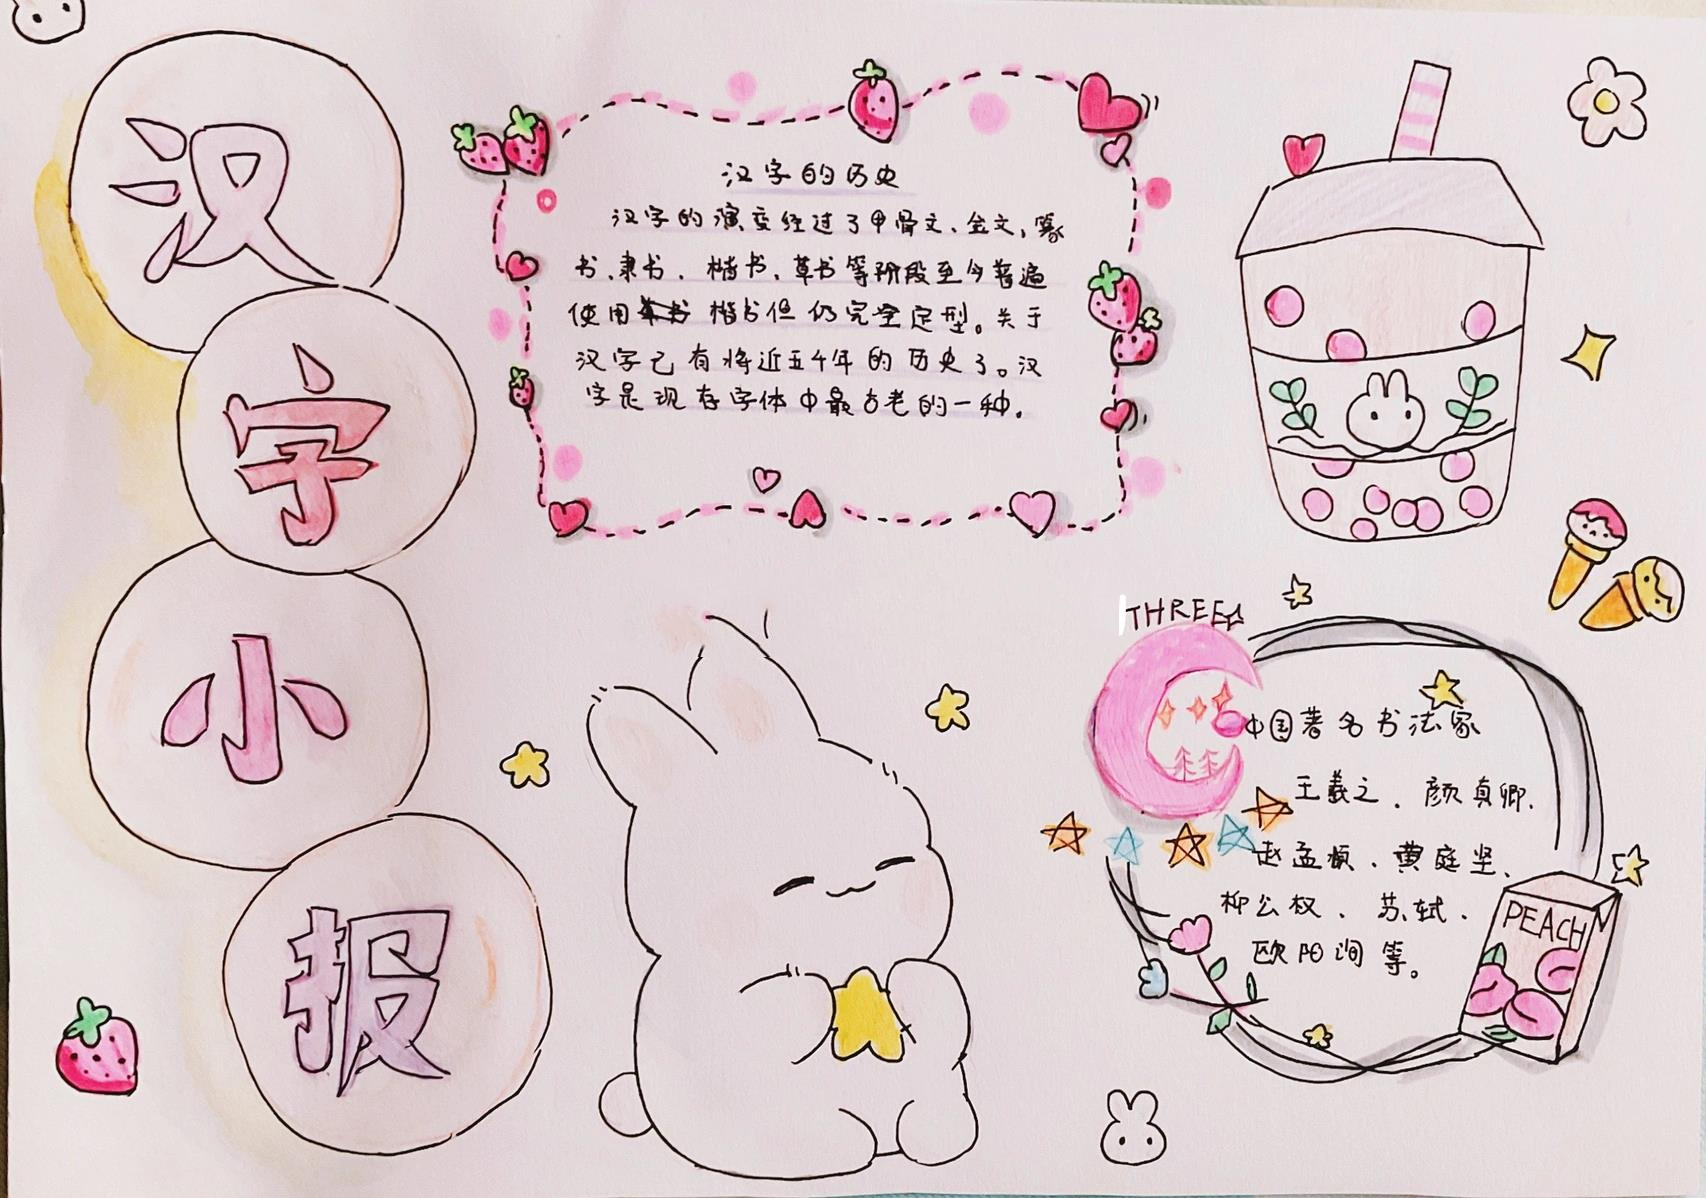 汉
字
小
报
汉字的历史
汉字的演变经过了甲骨文、金文,篆
书、隶书、楷书、草书等阶段至今普遍
使用楷书但仍完全定型。关于
汉字已有将近五千年的历史了。汉
字是现存字体中最古老的一种。
THREE
中国著名书法家
王羲之、颜真卿、
赵孟頫、黄庭坚、
柳公权、苏轼、
欧阳询等。
PEACH